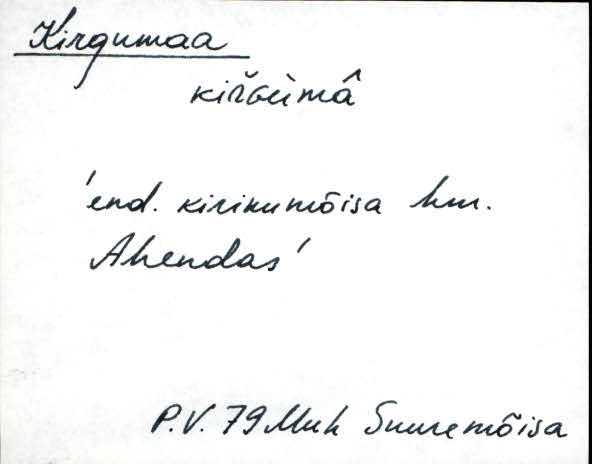 Kirgumaa
kiřɢùmâ
'end. kirikumõisa hm.
Ahendas'
P.V. 79 Muh Suuremõisa